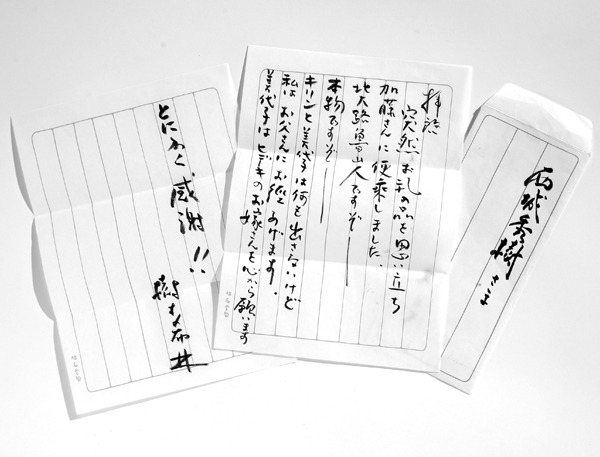 西城秀樹さま
拝啓
突然お礼の品を思い立ち
加藤さんに便乗しました、
北大路魯山人ですぞ―
本物ですぞ―
キリンと美代子は何も出さないけど
私は お父さんにお経あげます、
美代子はヒデキのお嫁さんを心から願います
とにかく感謝!!
樹木希林